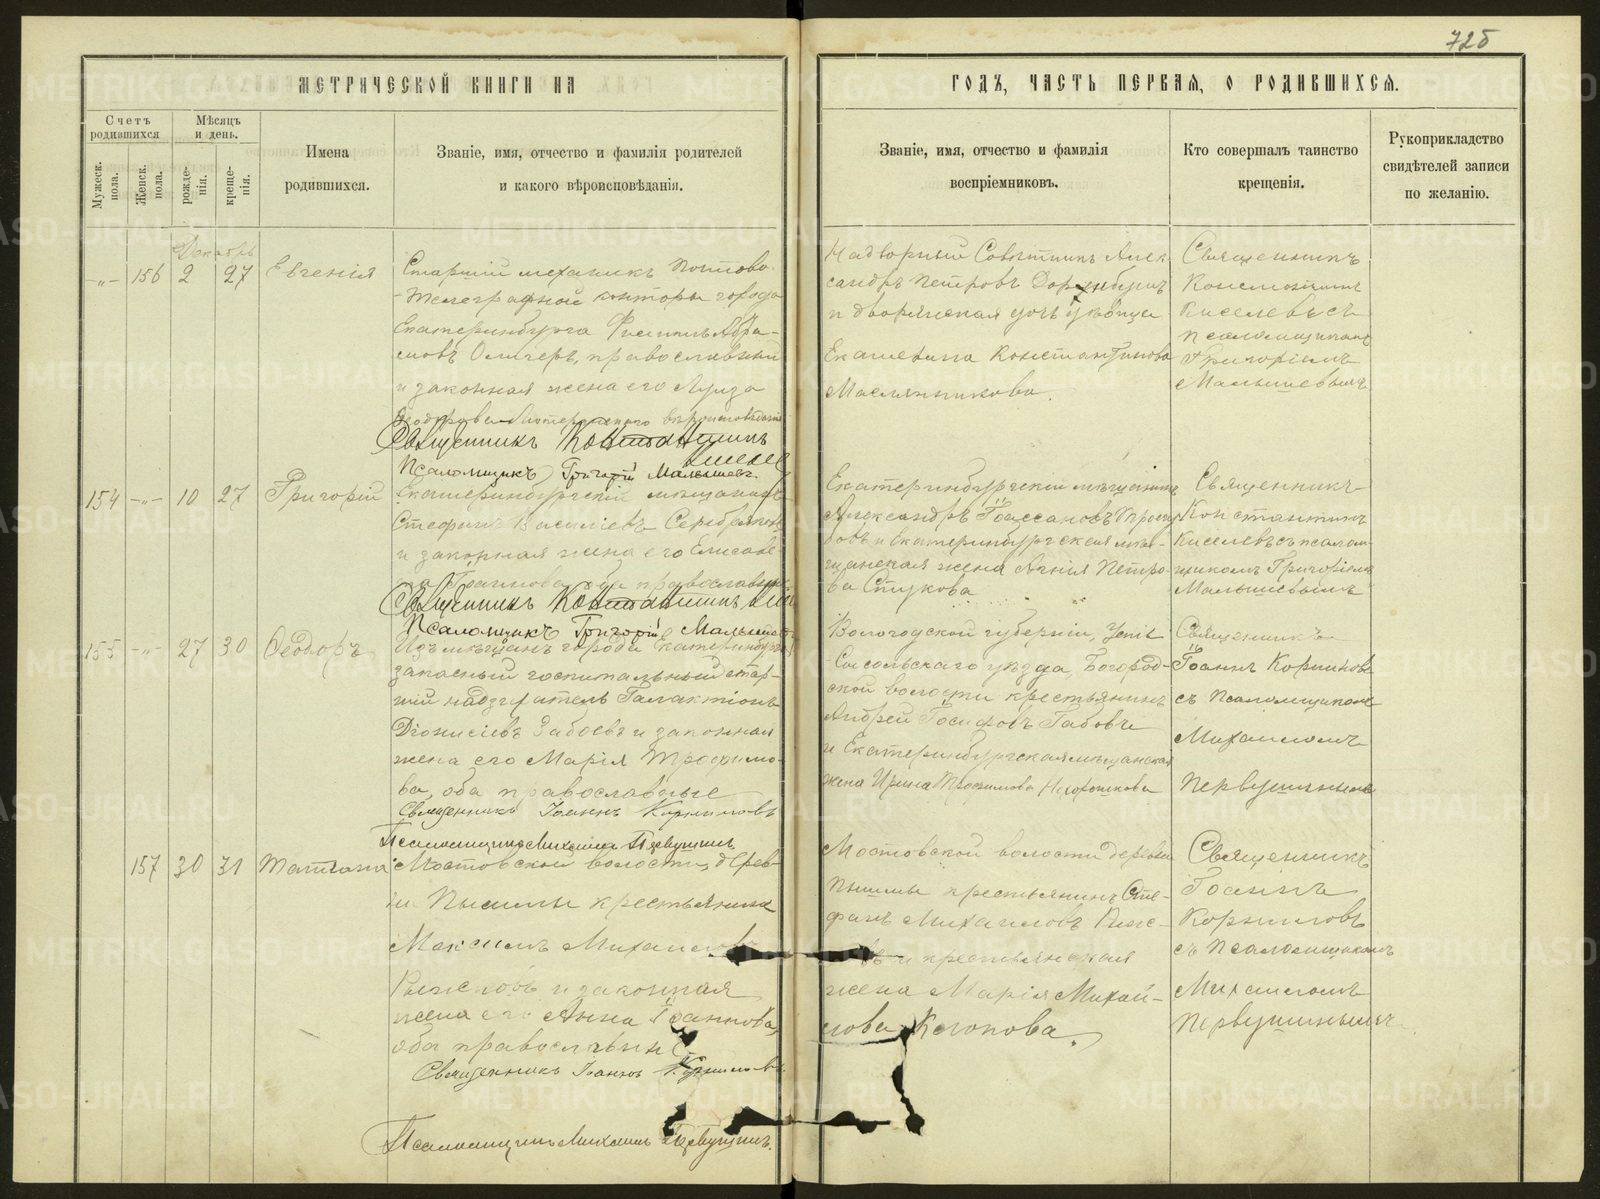 725
МЕТРИЧЕСКОЙ КНИГИ НА
ГОДЪ, ЧАСТЬ ПЕРВАЯ, О РОДИВШИХСЯ.
Счетъ
родившихся
Мужеск.
пола.
Женск.
пола.
Мѣсяцъ
и день.
рожде-
нія.
креще-
нія.
Имена
родившихся.
Званіе, имя, отчество и фамилія родителей
и какого вѣроисповѣданія.
Званіе, имя, отчество и фамилія
воспріемниковъ.
Кто совершалъ таинство
крещенія.
Рукоприкладство
свидѣтелей записи
по желанію.
Декабрь
-„- 156 2 27 Евгенія
Старшій механикъ Почтово-
-Телеграфной конторы города
Екатеринбурга Филиппъ Абра-
мовъ православный
и законная жена его Луиза
Лютеранского
Священникъ Константинъ
Киселевъ
Псаломщикъ Григорій Малышевъ
Надворный Совѣтникъ Алек-
сандръ Петровъ
и дворянская дочь дѣвица
Екатерина Константинова
Маслянникова.
Священникъ
Константинъ
Киселевъ съ
псаломщикомъ
Григоріемъ
Малышевымъ
154 -„- 10 27 Григорій
Екатеринбургскій мѣщанинъ
Стефанъ Василіевъ
и законная жена его Елисаве-
та Іоаннова оба православные
Священникъ Константинъ
Псаломщикъ Григорій Малышевъ
Екатеринбургскій мѣщанинъ
Александръ
и Екатеринбургская мѣ-
щанская жена Агнія Петро-
ва Стукова
Священникъ
Константинъ
Киселевъ съ псалом-
щикомъ Григоріемъ
Малышевымъ
155 -„- 27 30 Ѳеодоръ
Изъ мѣщанъ города Екатеринбурга
запасный госпитальный стар-
шій надзиратель Галактіонъ
Діонисіевъ Забоевъ и законная
жена его Марія Трофимо-
ва, оба православные
Священникъ Іоаннъ Корниловъ
Псаломщикъ Михаилъ Первушинъ
Вологодской губерніи, Усть-
-Сысольскаго уѣзда, Богород-
ской волости крестьянинъ
Андрей Іосифовъ Габовъ
и Екатеринбургская мѣщанская
жена Ирина Трофимова
Священникъ
Іоаннъ Корниловъ
съ Псаломщикомъ
Михаиломъ
Первушинымъ
157 30 31 Татіана
Мостовской волости, дерев-
ни Пышмы крестьянинъ
Максимъ Михаиловъ
Рыжковъ и законная
жена его Анна Іоаннова,
оба православные
Священникъ Іоаннъ Корниловъ
Псаломщикъ Михаилъ Первушинъ.
Мостовской волости деревни
Пышмы крестьянинъ Сте-
фанъ Михаиловъ Рыж-
ковъ и крестьянская
жена Марія Михай-
лова Клюкова.
Священникъ
Іоаннъ
Корниловъ
съ Псаломщикомъ
Михаиломъ
Первушинымъ
METRIKI.GASO-URAL.RU